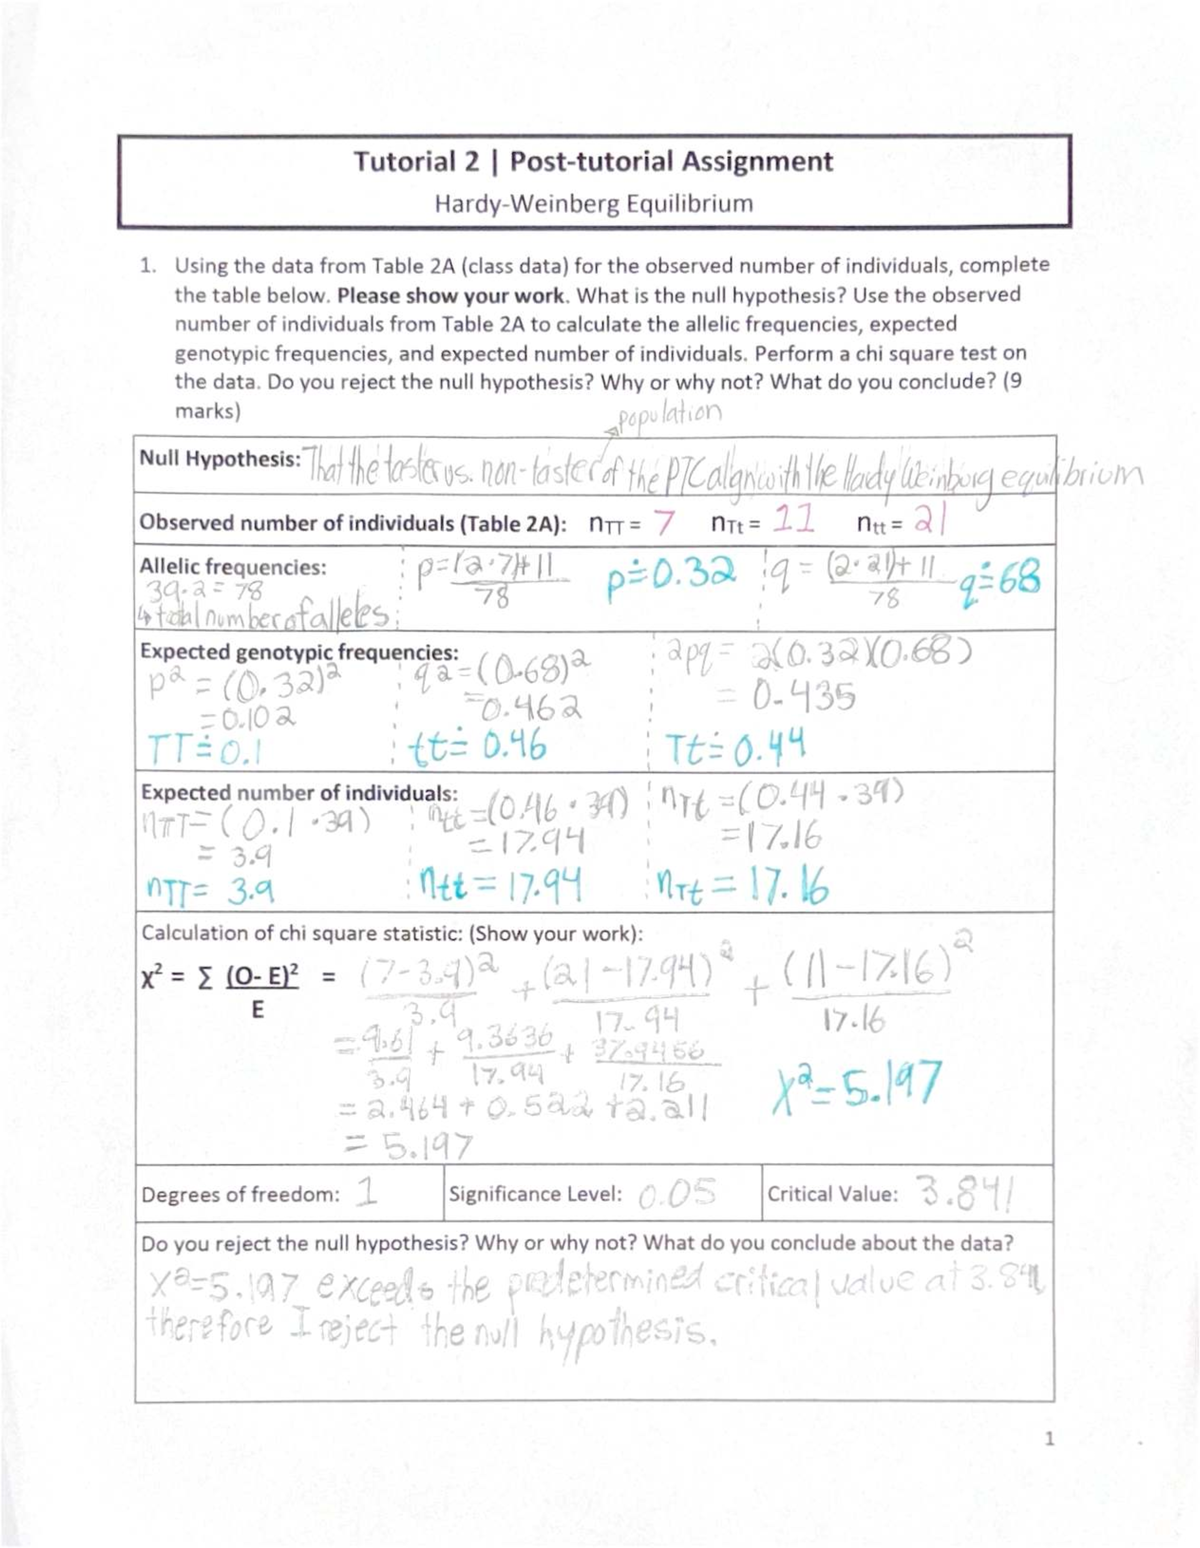 Tutorial 2 | Post-tutorial Assignment
Hardy-Weinberg Equilibrium
1. Using the data from Table 2A (class data) for the observed number of individuals, complete
the table below. Please show your work. What is the null hypothesis? Use the observed
number of individuals from Table 2A to calculate the allelic frequencies, expected
genotypic frequencies, and expected number of individuals. Perform a chi square test on
the data. Do you reject the null hypothesis? Why or why not? What do you conclude? (9
marks)
population
Null Hypothesis: That the taster vs. non-taster of the PTC align with the Hardy Weinburg equilibrium
Observed number of individuals (Table 2A): nTT = 7 nTt = 11 ntt = 21
Allelic frequencies: p=(2·7)+11 p≐0.32 q = (2·21)+11 q≐68
39·2=78 78 78
↳ total number of alleles
Expected genotypic frequencies: 2pq = 2(0.32)(0.68)
p² = (0.32)² q² = (0.68)² = 0.435
=0.102 =0.462
TT≐0.1 tt≐ 0.46 Tt≐0.44
Expected number of individuals: ntt =(0.46·39) nTt =(0.44·39)
nTT=(0.1·39) =17.94 =17.16
= 3.9
nTT= 3.9 ntt = 17.94 nTt = 17.16
Calculation of chi square statistic: (Show your work):
χ² = ∑ (O- E)² = (7-3.9)² + (21-17.94)² + (11-17.16)²
E 3.9 17.94 17.16
= 9.61 + 9.3636 + 37.9456
3.9 17.94 17.16
= 2.464 + 0.522 + 2.211 X²=5.197
= 5.197
Degrees of freedom: 1 Significance Level: 0.05 Critical Value: 3.841
Do you reject the null hypothesis? Why or why not? What do you conclude about the data?
X²=5.197 exceeds the predetermined critical value at 3.841,
therefore I reject the null hypothesis.
1